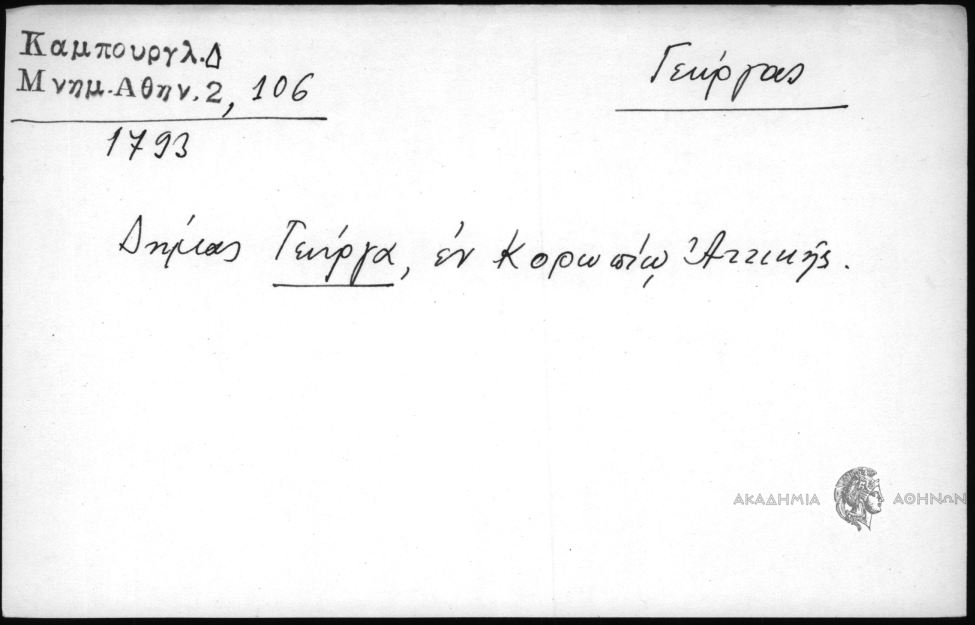 Καμπουργλ.Δ
Μνημ.Αθην.2, 106
1793
Γεώργας
Δημίας Γεώργα, ἐν Κορωπίῳ Ἀττικῆς.
ΑΚΑΔΗΜΙΑ ΑΘΗΝΩΝ